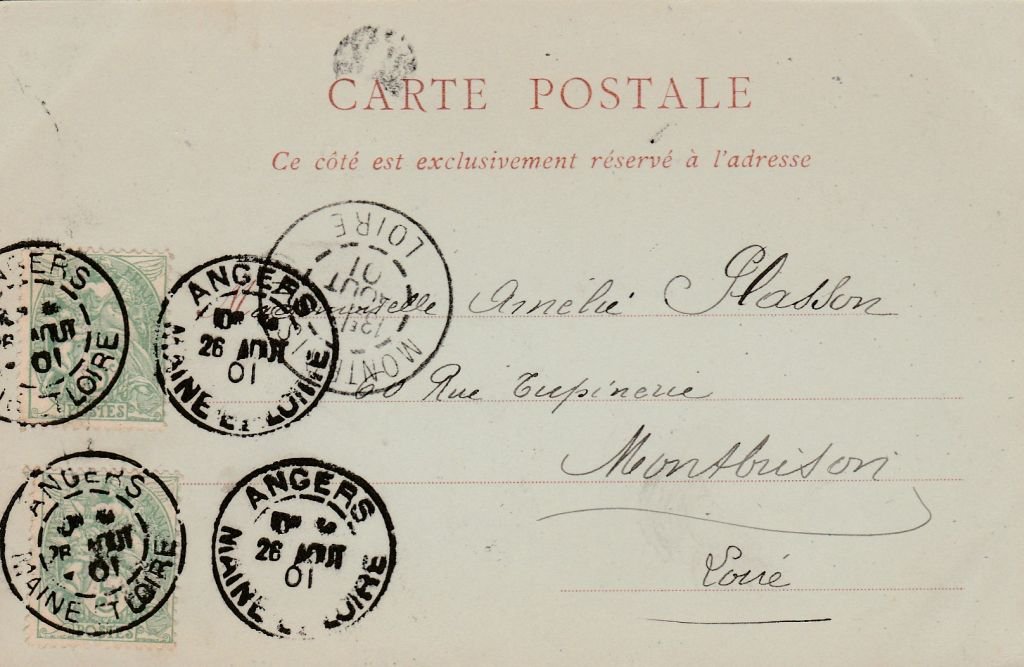 CARTE POSTALE
Ce côté est exclusivement réservé à l'adresse
Mademoiselle Amélie Plasson
60 Rue Tupinerie
Montbrison
Loire
ANGERS
AOUT
01
LOIRE
POSTES
ANGERS
26 AOUT
01
MAINE ET LOIRE
LOIRE
AOUT
01
ANGERS
26 AOUT
01
MAINE ET LOIRE
POSTES
ANGERS
26 AOUT
01
MAINE ET LOIRE